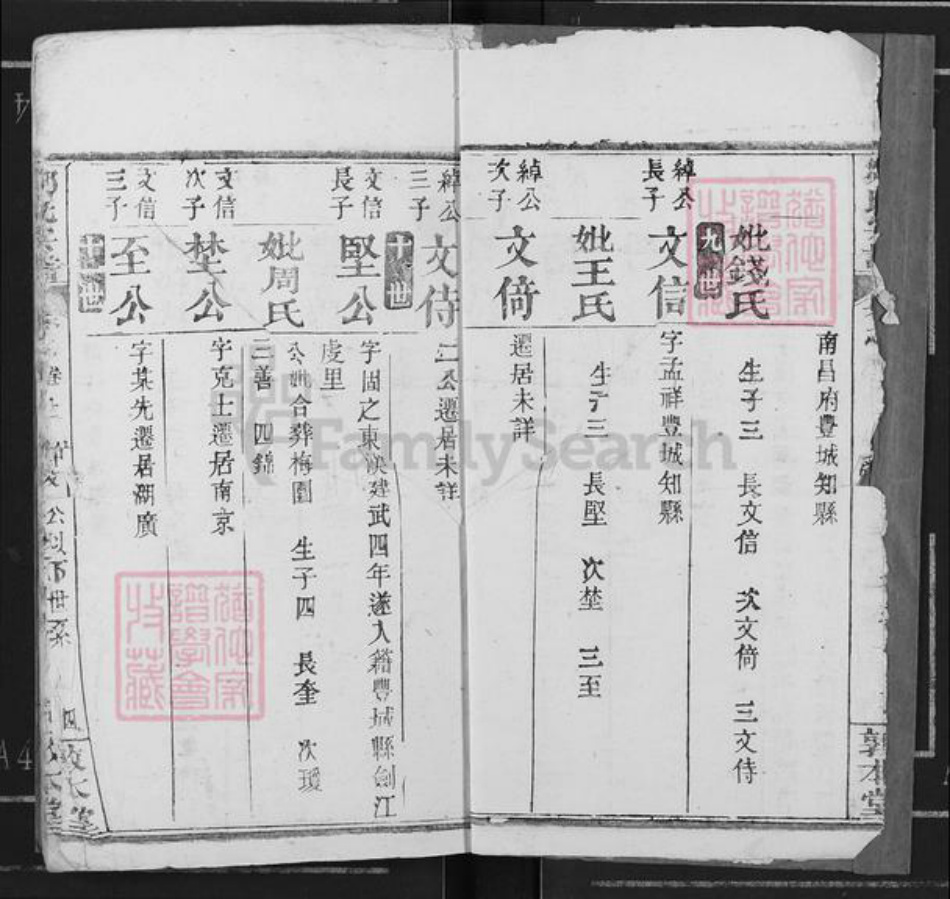 南昌府豐城知縣
妣錢氏
生子三 長文信 次文倚 三文侍
九世
綽公長子
文信
字孟祥豐城知縣
妣王氏
生子三 長堅 次埜 三至
綽公次子
文倚
遷居未詳
綽公三子
文侍
二公遷居未詳
十世
文信長子
堅公
字固之東漢建武四年遂入籍豐城縣劍江
虔里
妣周氏
公妣合葬梅園 生子四 長奎 次瑷
三善 四錦
文信次子
埜公
字克士遷居南京
文信三子
至公
字某先遷居湖廣
十一世
公以下世系
四
敦本堂
FamilySearch